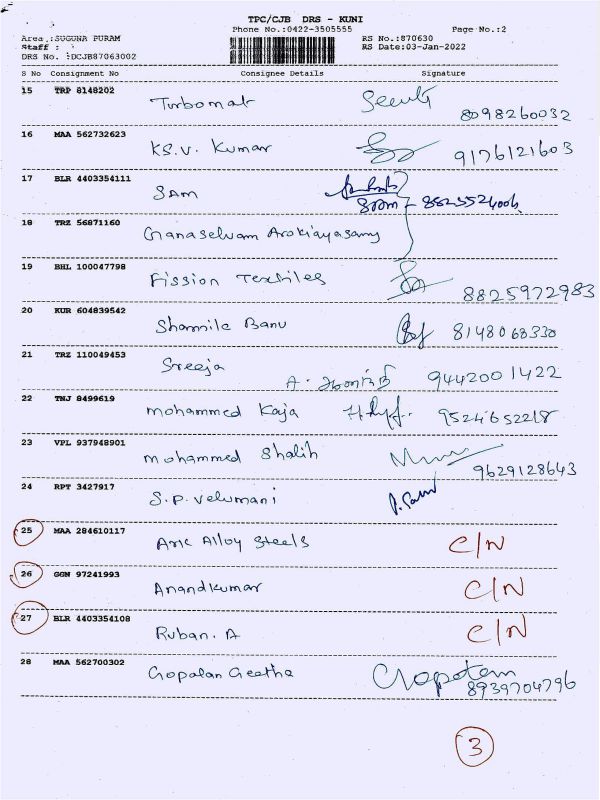 TPC/CJB DRS - KUNI
Phone No.:0422-3505555 Page No.:2
Area :SUGUNA PURAM RS No.:870630
Staff : RS Date:03-Jan-2022
DRS No. :DCJB87063002
S No Consignment No Consignee Details Signature
15 TRP 8148202
Turbomat
8098260032
16 MAA 562732623
KS.V. Kumar
9176121603
17 BLR 4403354111
SAM
18 TRZ 56871160
Gnanaselvam Arokiayasamy
19 BHL 100047798
Fission Textiles
8825972983
20 KUR 604839542
Sharmila Banu 8148068330
21 TRZ 110049453
Sreeja
9442001422
22 TNJ 8499619
mohammed Kaja 9524652218
23 VPL 937948901
mohammed Shalih
9629128643
24 RPT 3427917
S.P. Velumani
25 MAA 284610117
Alloy Steels C/N
26 GGN 97241993
Anandkumar C/N
27 BLR 4403354108
Ruban. A C/N
28 MAA 562700302
Gopalan Geetha
8939704796
3